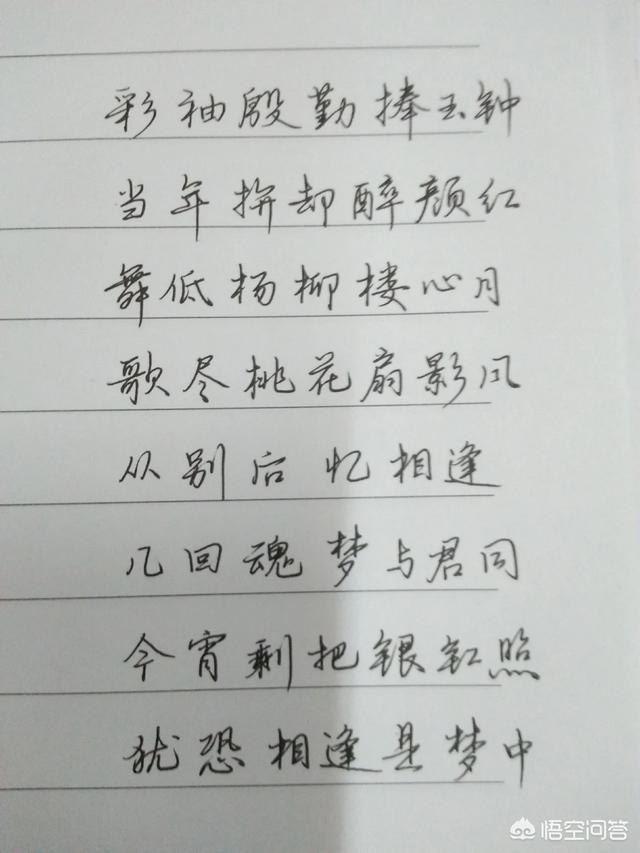 彩袖殷勤捧玉钟
当年拚却醉颜红
舞低杨柳楼心月
歌尽桃花扇影风
从别后忆相逢
几回魂梦与君同
今宵剩把银缸照
犹恐相逢是梦中
悟空问答